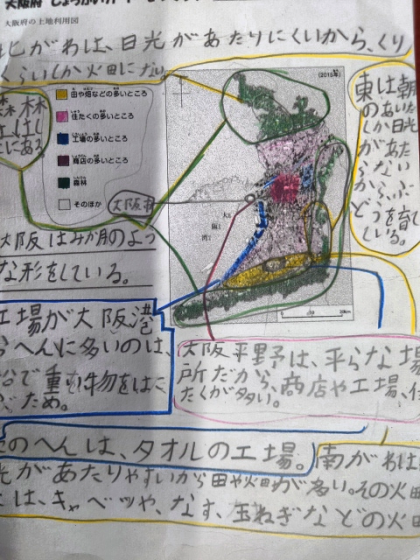 大阪府の土地利用図
がわは、日光があたりにくいから、くり
(2015年)
田や畑などの多いところ
住たくの多いところ
工場の多いところ
商店の多いところ
森林
そのほか
大阪
東は朝
しか日光
があた
らない
から、ぶ
どうを育
している。
大阪はみか月のよう
な形をしている。
工場が大阪港
へんに多いのは、
船で重い物をはこ
ため。
大阪平野は、平らな場
所だから、商店や工場、住
たくが多い。
のへんは、タオルの工場。
南がわは
光があたりやすいから田や畑が多い。その畑
は、キャベツや、なす、玉ねぎなどの畑